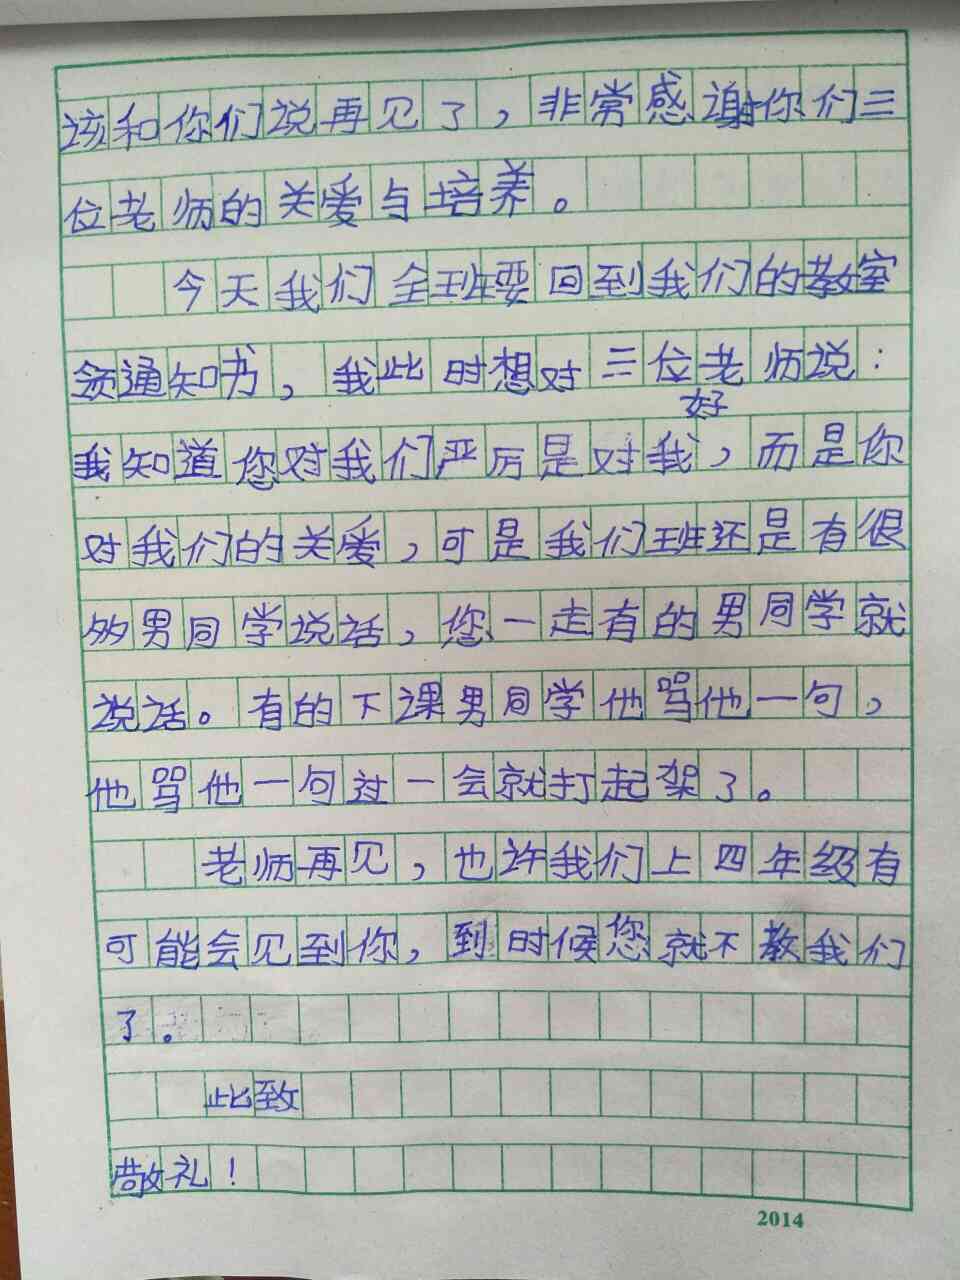 该和你们说再见了，非常感谢你们三
位老师的关爱与培养。
今天我们全班要回到我们的教室
领通知书，我此时想对三位老师说：
我知道您对我们严厉是对我好，而是你
对我们的关爱，可是我们班还是有很
多男同学说话，您一走有的男同学就
说话。有的下课男同学他骂他一句，
他骂他一句过一会就打起架了。
老师再见，也许我们上四年级有
可能会见到你，到时候您就不教我们
了。
此致
敬礼！
2014